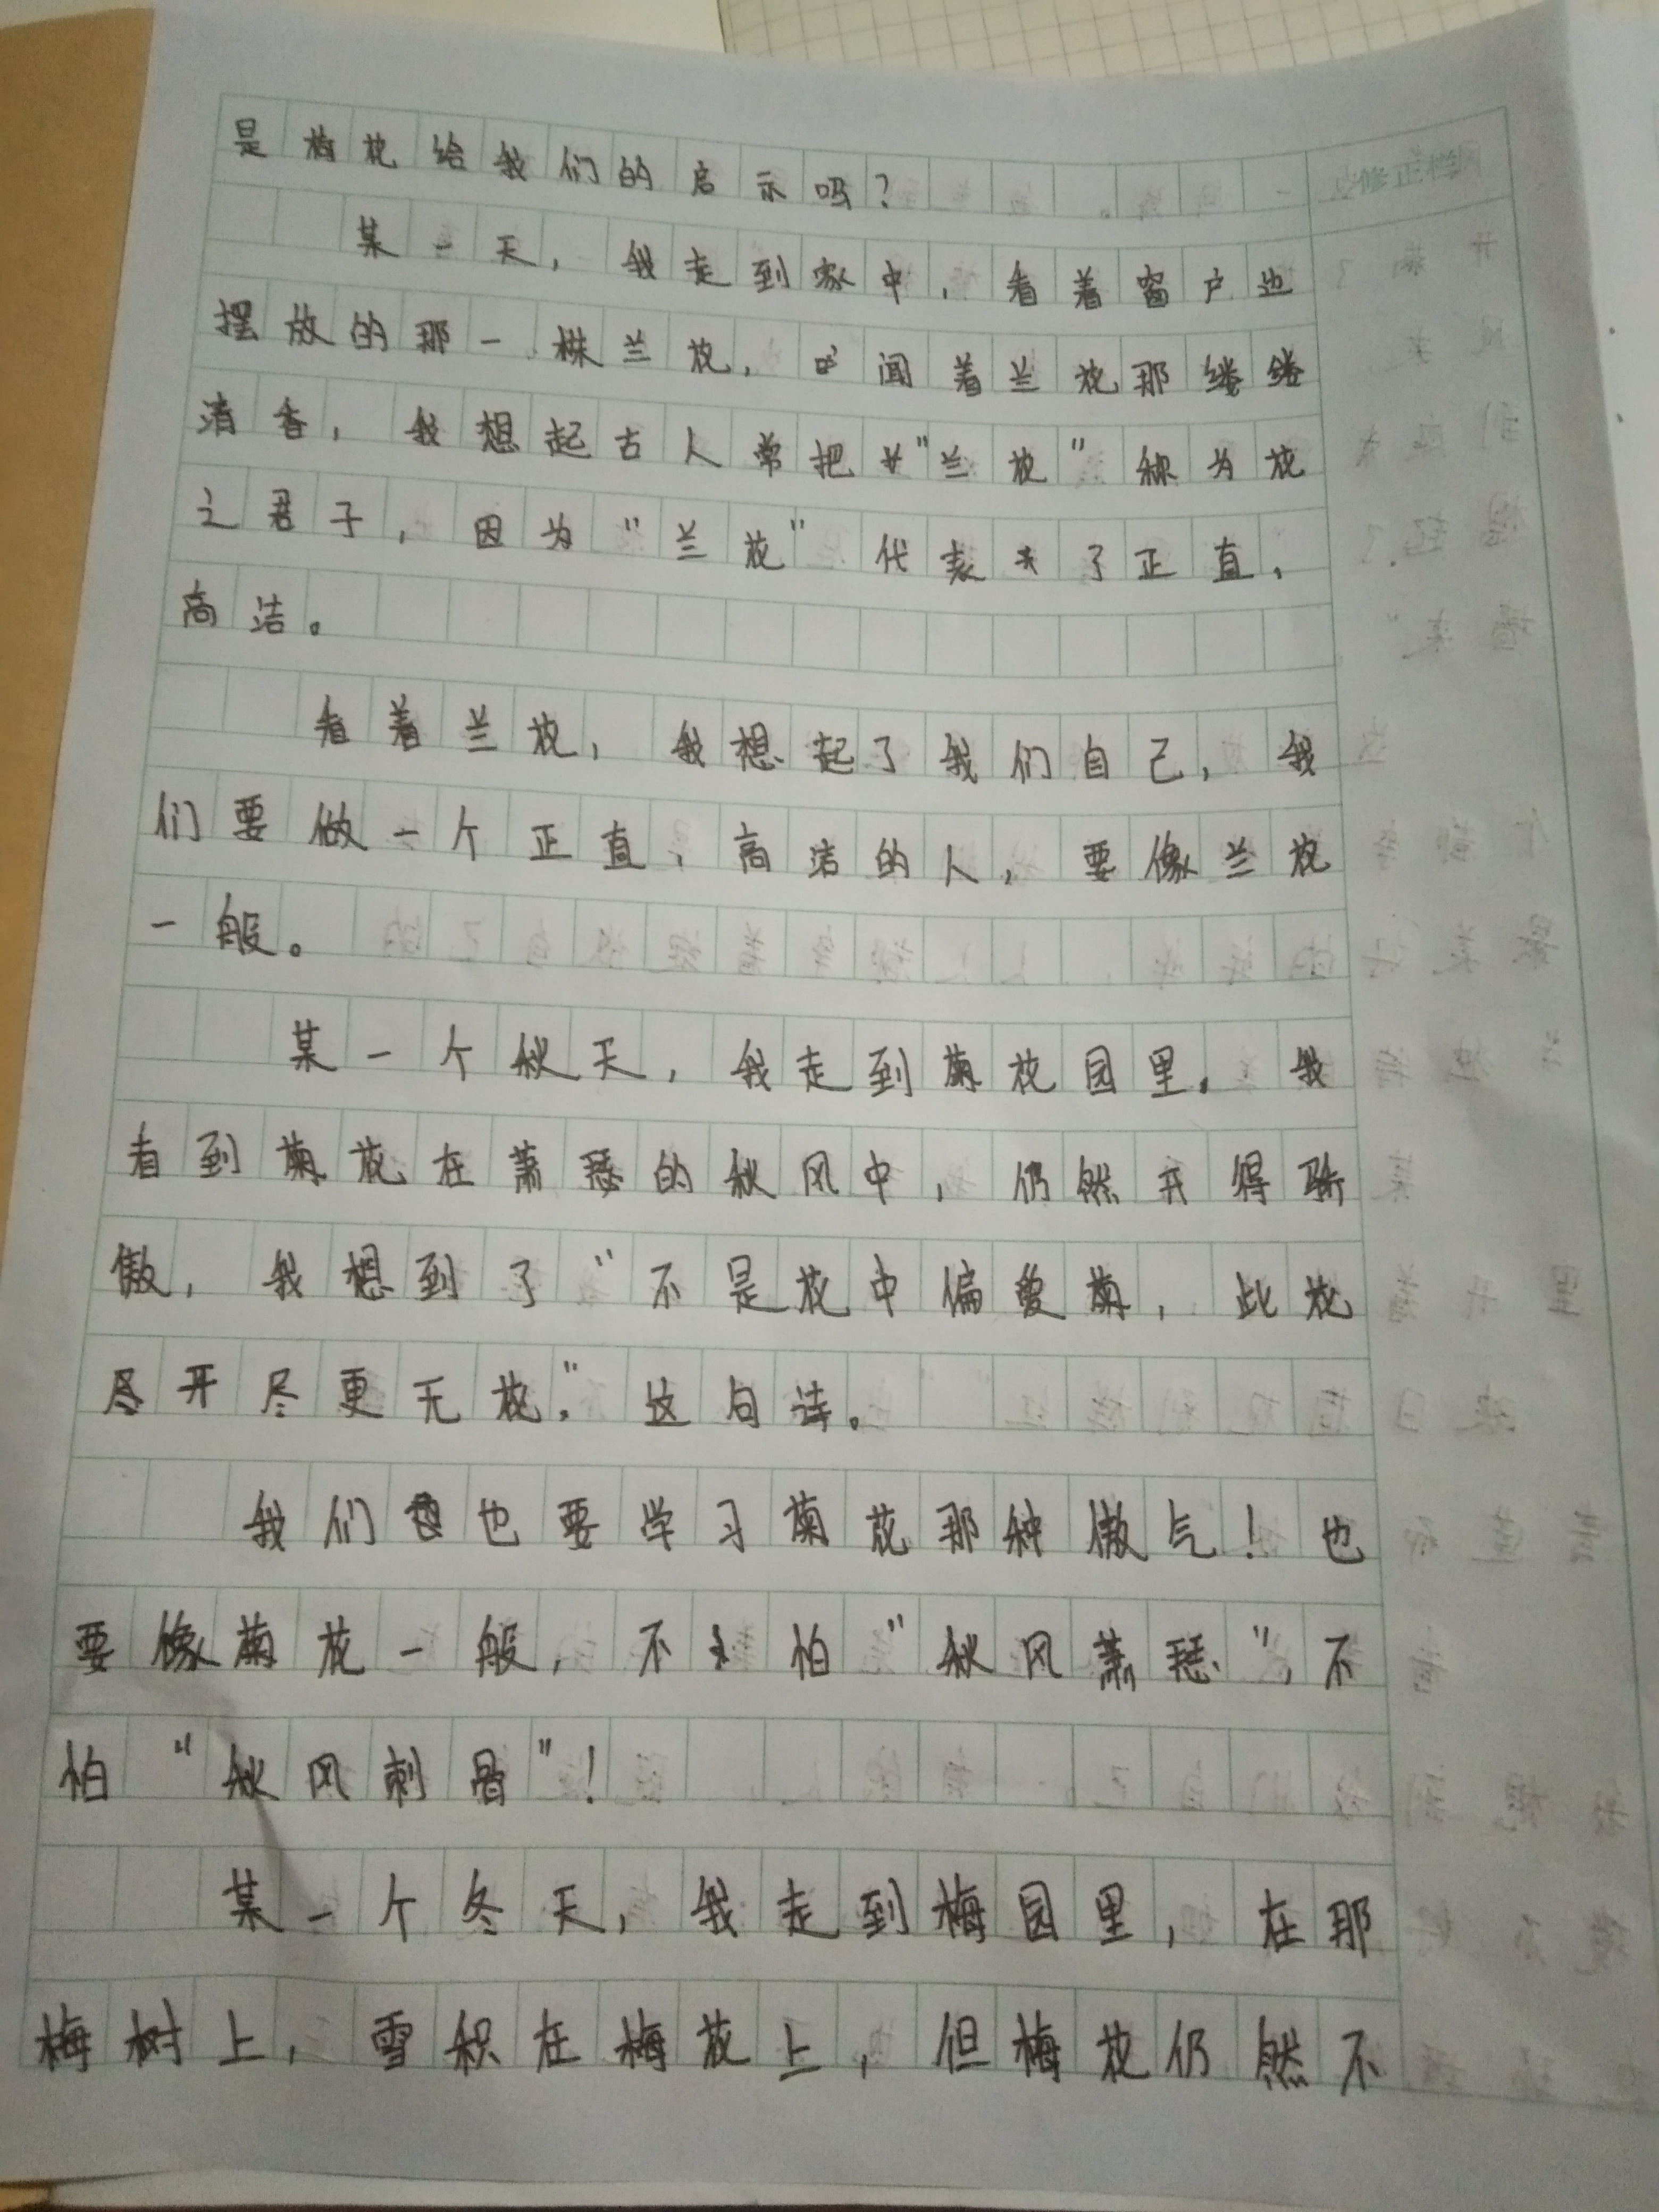 是梅花给我们的启示吗？
修正栏
某一天，我走到家中，看着窗户边
摆放的那一株兰花，闻着兰花那缕缕
清香，我想起古人常把“兰花”称为花
之君子，因为“兰花”代表了正直，
高洁。
看着兰花，我想起了我们自己，我
们要做一个正直，高洁的人，要像兰花
一般。
某一个秋天，我走到菊花园里。我
看到菊花在萧瑟的秋风中，仍然开得骄
傲，我想到了“不是花中偏爱菊，此花
尽开尽更无花。”这句诗。
我们也要学习菊花那种傲气！也
要像菊花一般，不怕“秋风萧瑟”，不
怕“秋风刺骨”！
某一个冬天，我走到梅园里，在那
梅树上，雪积在梅花上，但梅花仍然不